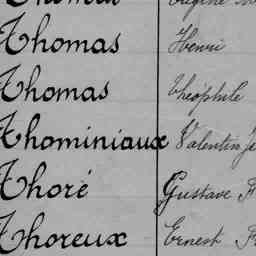 Thomas Henri
Thomas Théophile
Thominiaux Valentin
Thoré Gustave F
Thoreux Ernest F